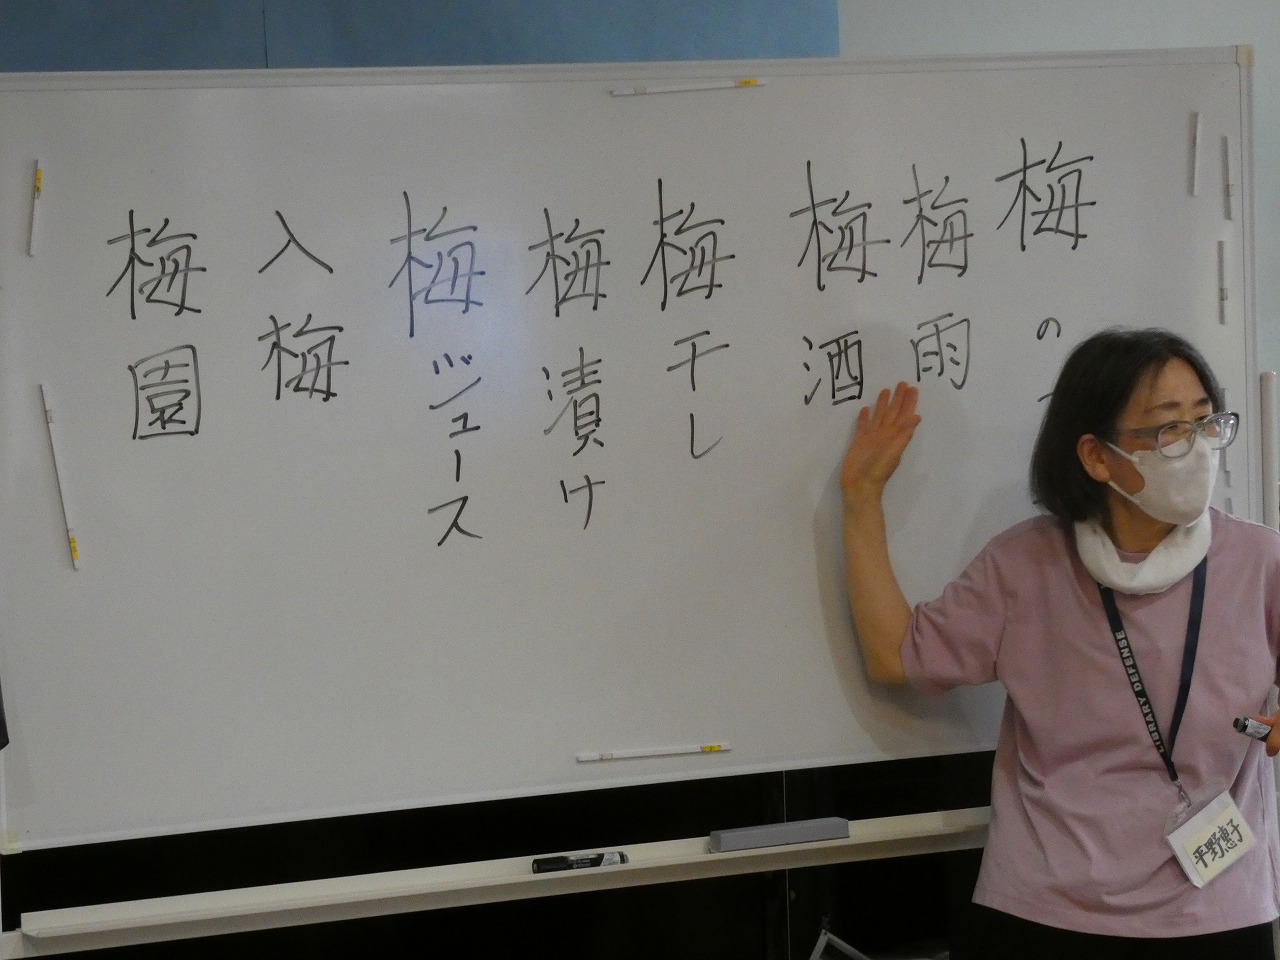 梅の
梅雨
梅酒
梅干し
梅漬け
梅ジュース
入梅
梅園
LIBRARY DEFENSE
平野惠子